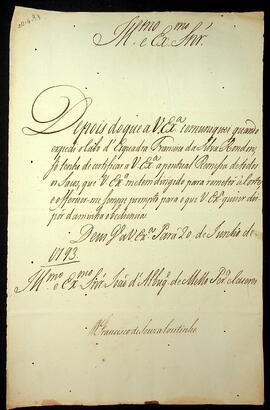 Illmo e Exmo Snr.
Depois do que a V. Exa. comuniquei quando
expedi o Cabo d'Esquadra Francisco da Silva Rondon,
só tenho de certificar a V. Exa. a pontual Remessa de todos
os Sacos, que V. Exa. me tem dirigido para remeter á Corte,
e offerecer-me sempre prompto para o que V. Exa. quizer dis
pôr da minha obediencia.
Deus Ge. a V. Exa. Pará 20 de Junho de
1793.
Illmo e Exmo Snr. João d'Albuq. de Mello Per. e Caceres
D. Francisco de Souza Coutinho